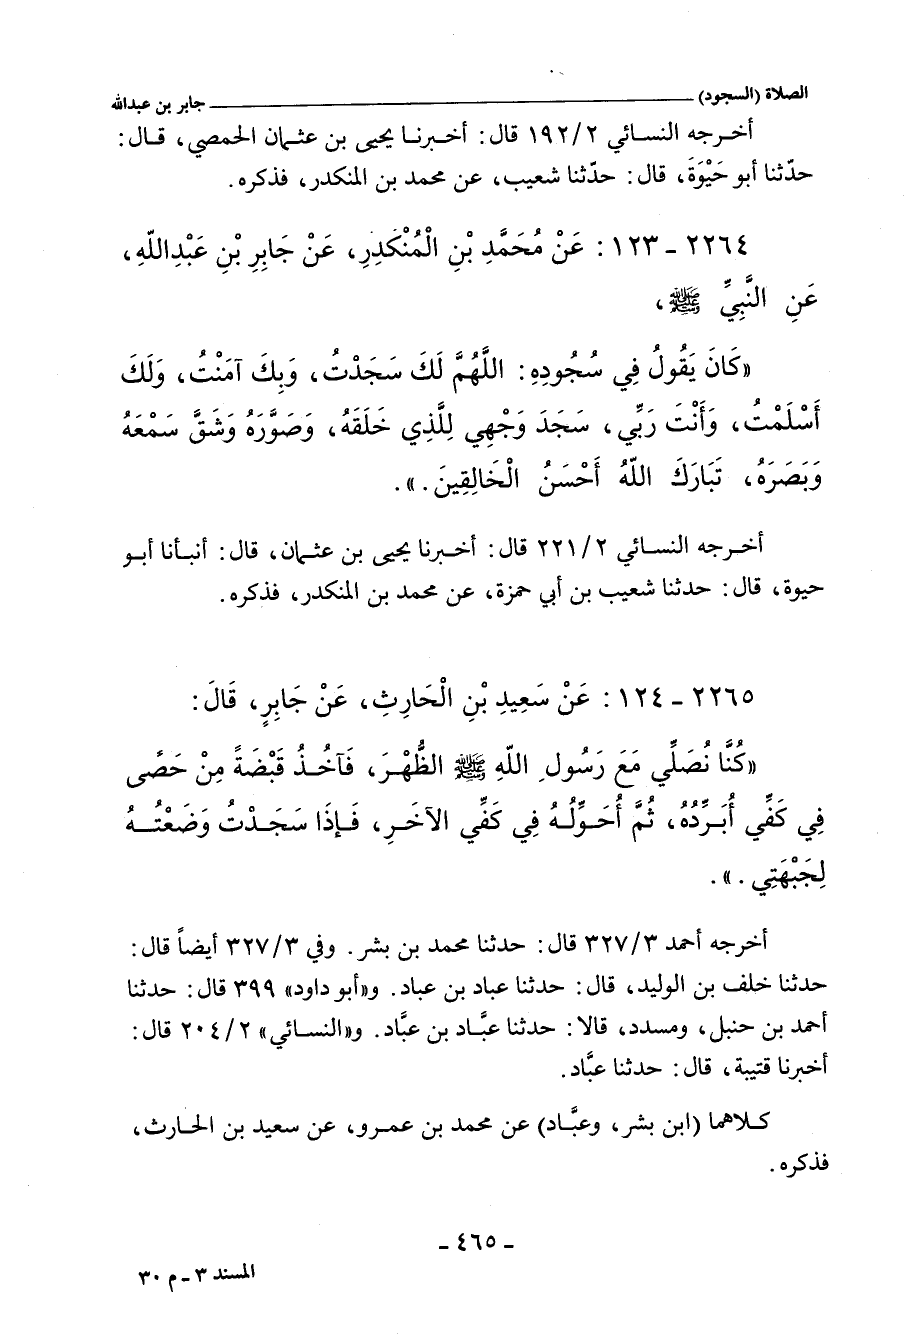 الصلاة (السجود) ــــــــــ جابر بن عبدالله
أخرجه النسائي ١٩٢/٢ قال: أخبرنا يحيى بن عثمان الحمصي، قال:
حدّثنا أبو حَيْوَةَ، قال: حدّثنا شعيب، عن محمد بن المنكدر، فذكره.
٢٢٦٤ - ١٢٣: عَنْ مُحَمَّدِ بْنِ الْمُنْكَدِرِ، عَنْ جَابِرِ بْنِ عَبْدِاللّٰهِ،
عَنِ النَّبِيِّ ﷺ،
«كَانَ يَقُولُ فِي سُجُودِهِ: اللَّهُمَّ لَكَ سَجَدْتُ، وَبِكَ آمَنْتُ، وَلَكَ
أَسْلَمْتُ، وَأَنْتَ رَبِّي، سَجَدَ وَجْهِي لِلَّذِي خَلَقَهُ، وَصَوَّرَهُ وَشَقَّ سَمْعَهُ
وَبَصَرَهُ، تَبَارَكَ اللّٰهُ أَحْسَنُ الْخَالِقِينَ.».
أخرجه النسائي ٢٢١/٢ قال: أخبرنا يحيى بن عثمان، قال: أنبأنا أبو
حيوة، قال: حدثنا شعيب بن أبي حمزة، عن محمد بن المنكدر، فذكره.
٢٢٦٥ - ١٢٤: عَنْ سَعِيدِ بْنِ الْحَارِثِ، عَنْ جَابِرٍ، قَالَ:
«كُنَّا نُصَلِّي مَعَ رَسُولِ اللّٰهِ ﷺ الظُّهْرَ، فَآخُذُ قَبْضَةً مِنْ حَصًى
فِي كَفِّي أُبَرِّدُهُ، ثُمَّ أُحَوِّلُهُ فِي كَفِّي الآخَرِ، فَإِذَا سَجَدْتُ وَضَعْتُهُ
لِجَبْهَتِي.».
أخرجه أحمد ٣٢٧/٣ قال: حدثنا محمد بن بشر. وفي ٣٢٧/٣ أيضاً قال:
حدثنا خلف بن الوليد، قال: حدثنا عباد بن عباد. و«أبو داود» ٣٩٩ قال: حدثنا
أحمد بن حنبل، ومسدد، قالا: حدثنا عبَّاد بن عبَّاد. و«النسائي» ٢٠٤/٢ قال:
أخبرنا قتيبة، قال: حدثنا عبَّاد.
كلاهما (ابن بشر، وعبَّاد) عن محمد بن عمرو، عن سعيد بن الحارث،
فذكره.
- ٤٦٥ -
المسند ٣ - م ٣٠